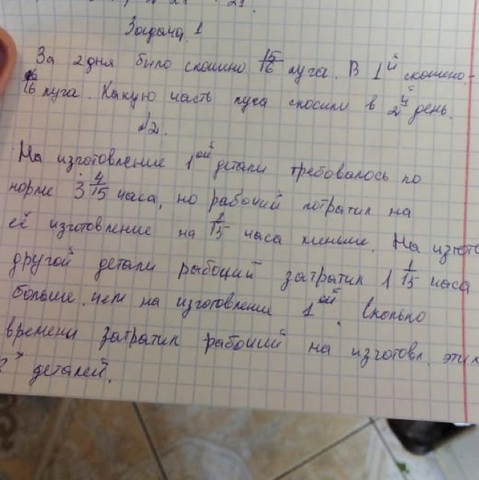 Задача 1
За 2 дня было скошено 15/16 луга. В 1й скошено
/16 луга. Какую часть луга скосили в 2й день.
№2.
На изготовление 1ой детали требовалось по
норме 3 4/15 часа, но рабочий потратил на
её изготовление на 1/15 часа меньше. На изгото
другой детали рабочий затратил 1 1/15 часа
больше, чем на изготовление 1ой. Сколько
времени затратил рабочий на изготовл. этих
2х деталей.